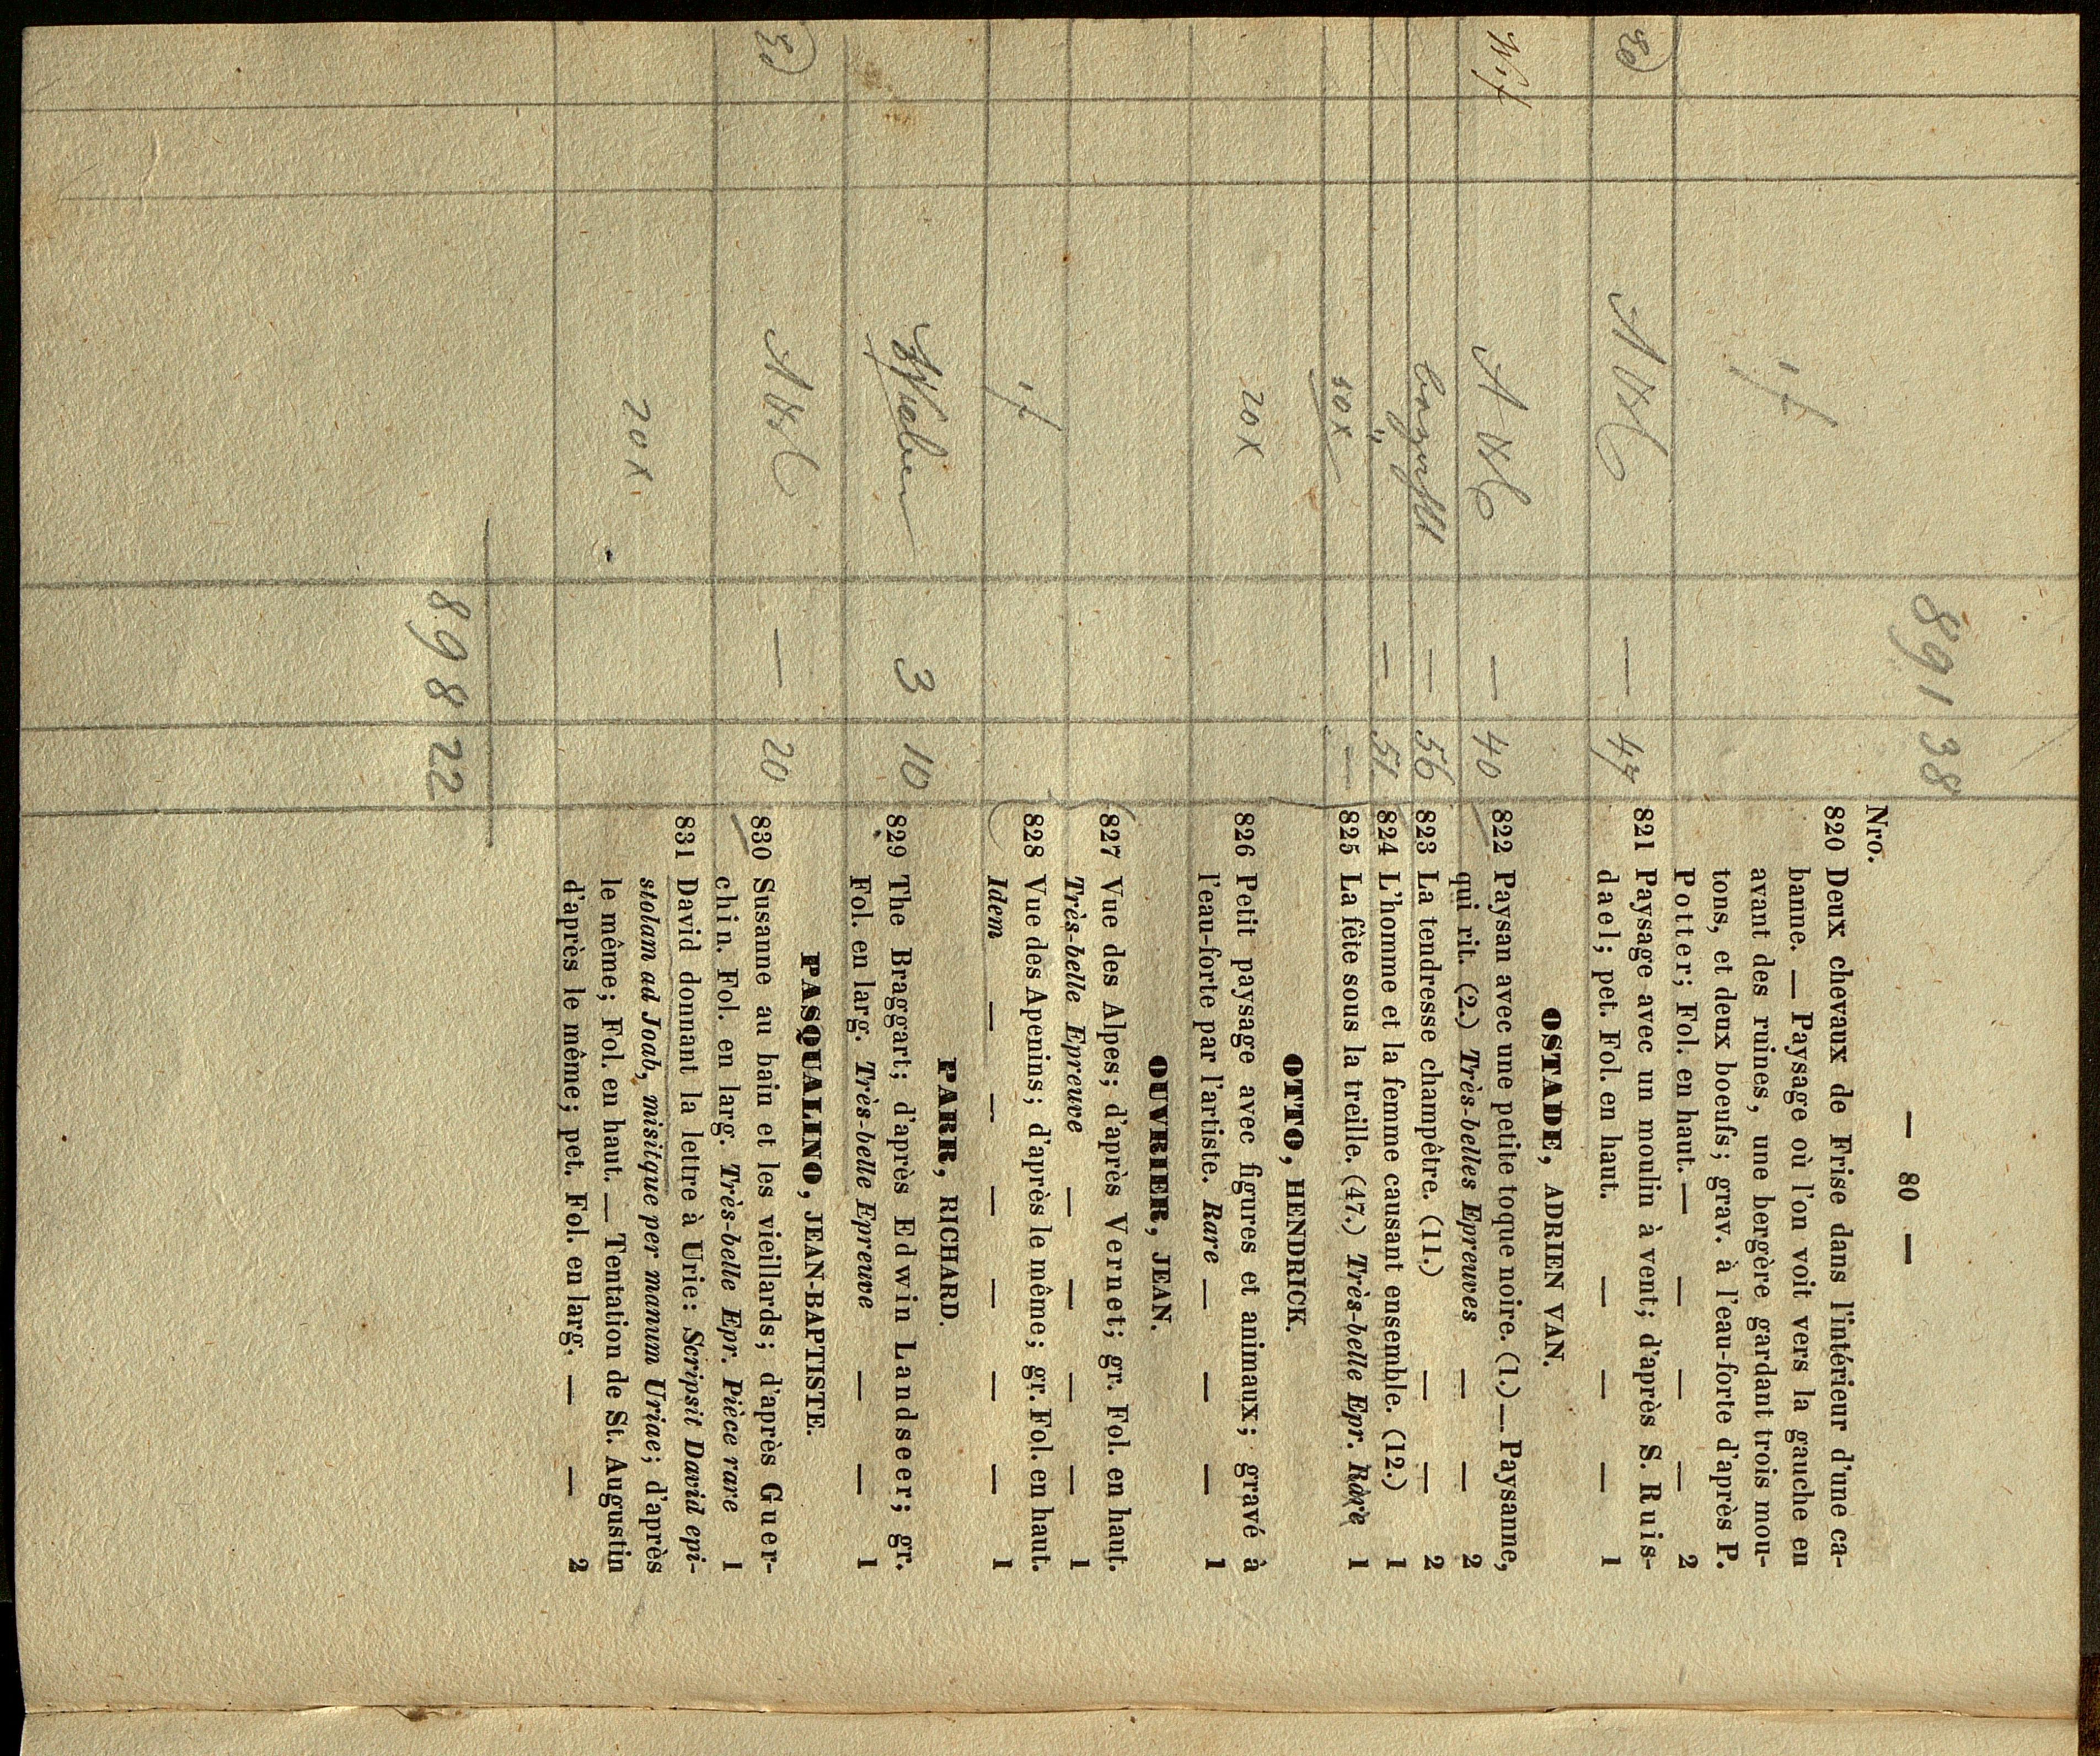 — 80 —
891 38
Nro.
820 Deux chevaux de Frise dans l'intérieur d'une ca-
banne. — Paysage où l'on voit vers la gauche en
avant des ruines, une bergère gardant trois mou-
tons, et deux boeufs; grav. à l'eau-forte d'après P.
Potter; Fol. en haut. — — — — 2
821 Paysage avec un moulin à vent; d'après S. Ruis-
dael; pet. Fol. en haut. — — — 1
— 47
OSTADE, ADRIEN VAN.
— 40 822 Paysan avec une petite toque noire. (1.) — Paysanne,
qui rit. (2.) Très-belles Epreuves — — 2
— 56 823 La tendresse champêtre. (11.) — — 2
— 51 824 L'homme et la femme causant ensemble. (12.) 1
50x — 825 La fête sous la treille. (47.) Très-belle Epr. Rare 1
OTTO, HENDRICK.
20x 826 Petit paysage avec figures et animaux; gravé à
l'eau-forte par l'artiste. Rare — — — 1
OUVRIER, JEAN.
827 Vue des Alpes; d'après Vernet; gr. Fol. en haut.
Très-belle Epreuve — — — — 1
828 Vue des Apenins; d'après le même; gr. Fol. en haut.
Idem — — — — — — 1
PARR, RICHARD.
3 10 829 The Braggart; d'après Edwin Landseer; gr.
Fol. en larg. Très-belle Epreuve — — 1
PASQUALINO, JEAN-BAPTISTE.
— 20 830 Susanne au bain et les vieillards; d'après Guer-
chin. Fol. en larg. Très-belle Epr. Pièce rare 1
831 David donnant la lettre à Urie: Scripsit David epi-
stolam ad Joab, misitque per manum Uriae; d'après
20x le même; Fol. en haut. — Tentation de St. Augustin
d'après le même; pet. Fol. en larg. — — 2
898 22